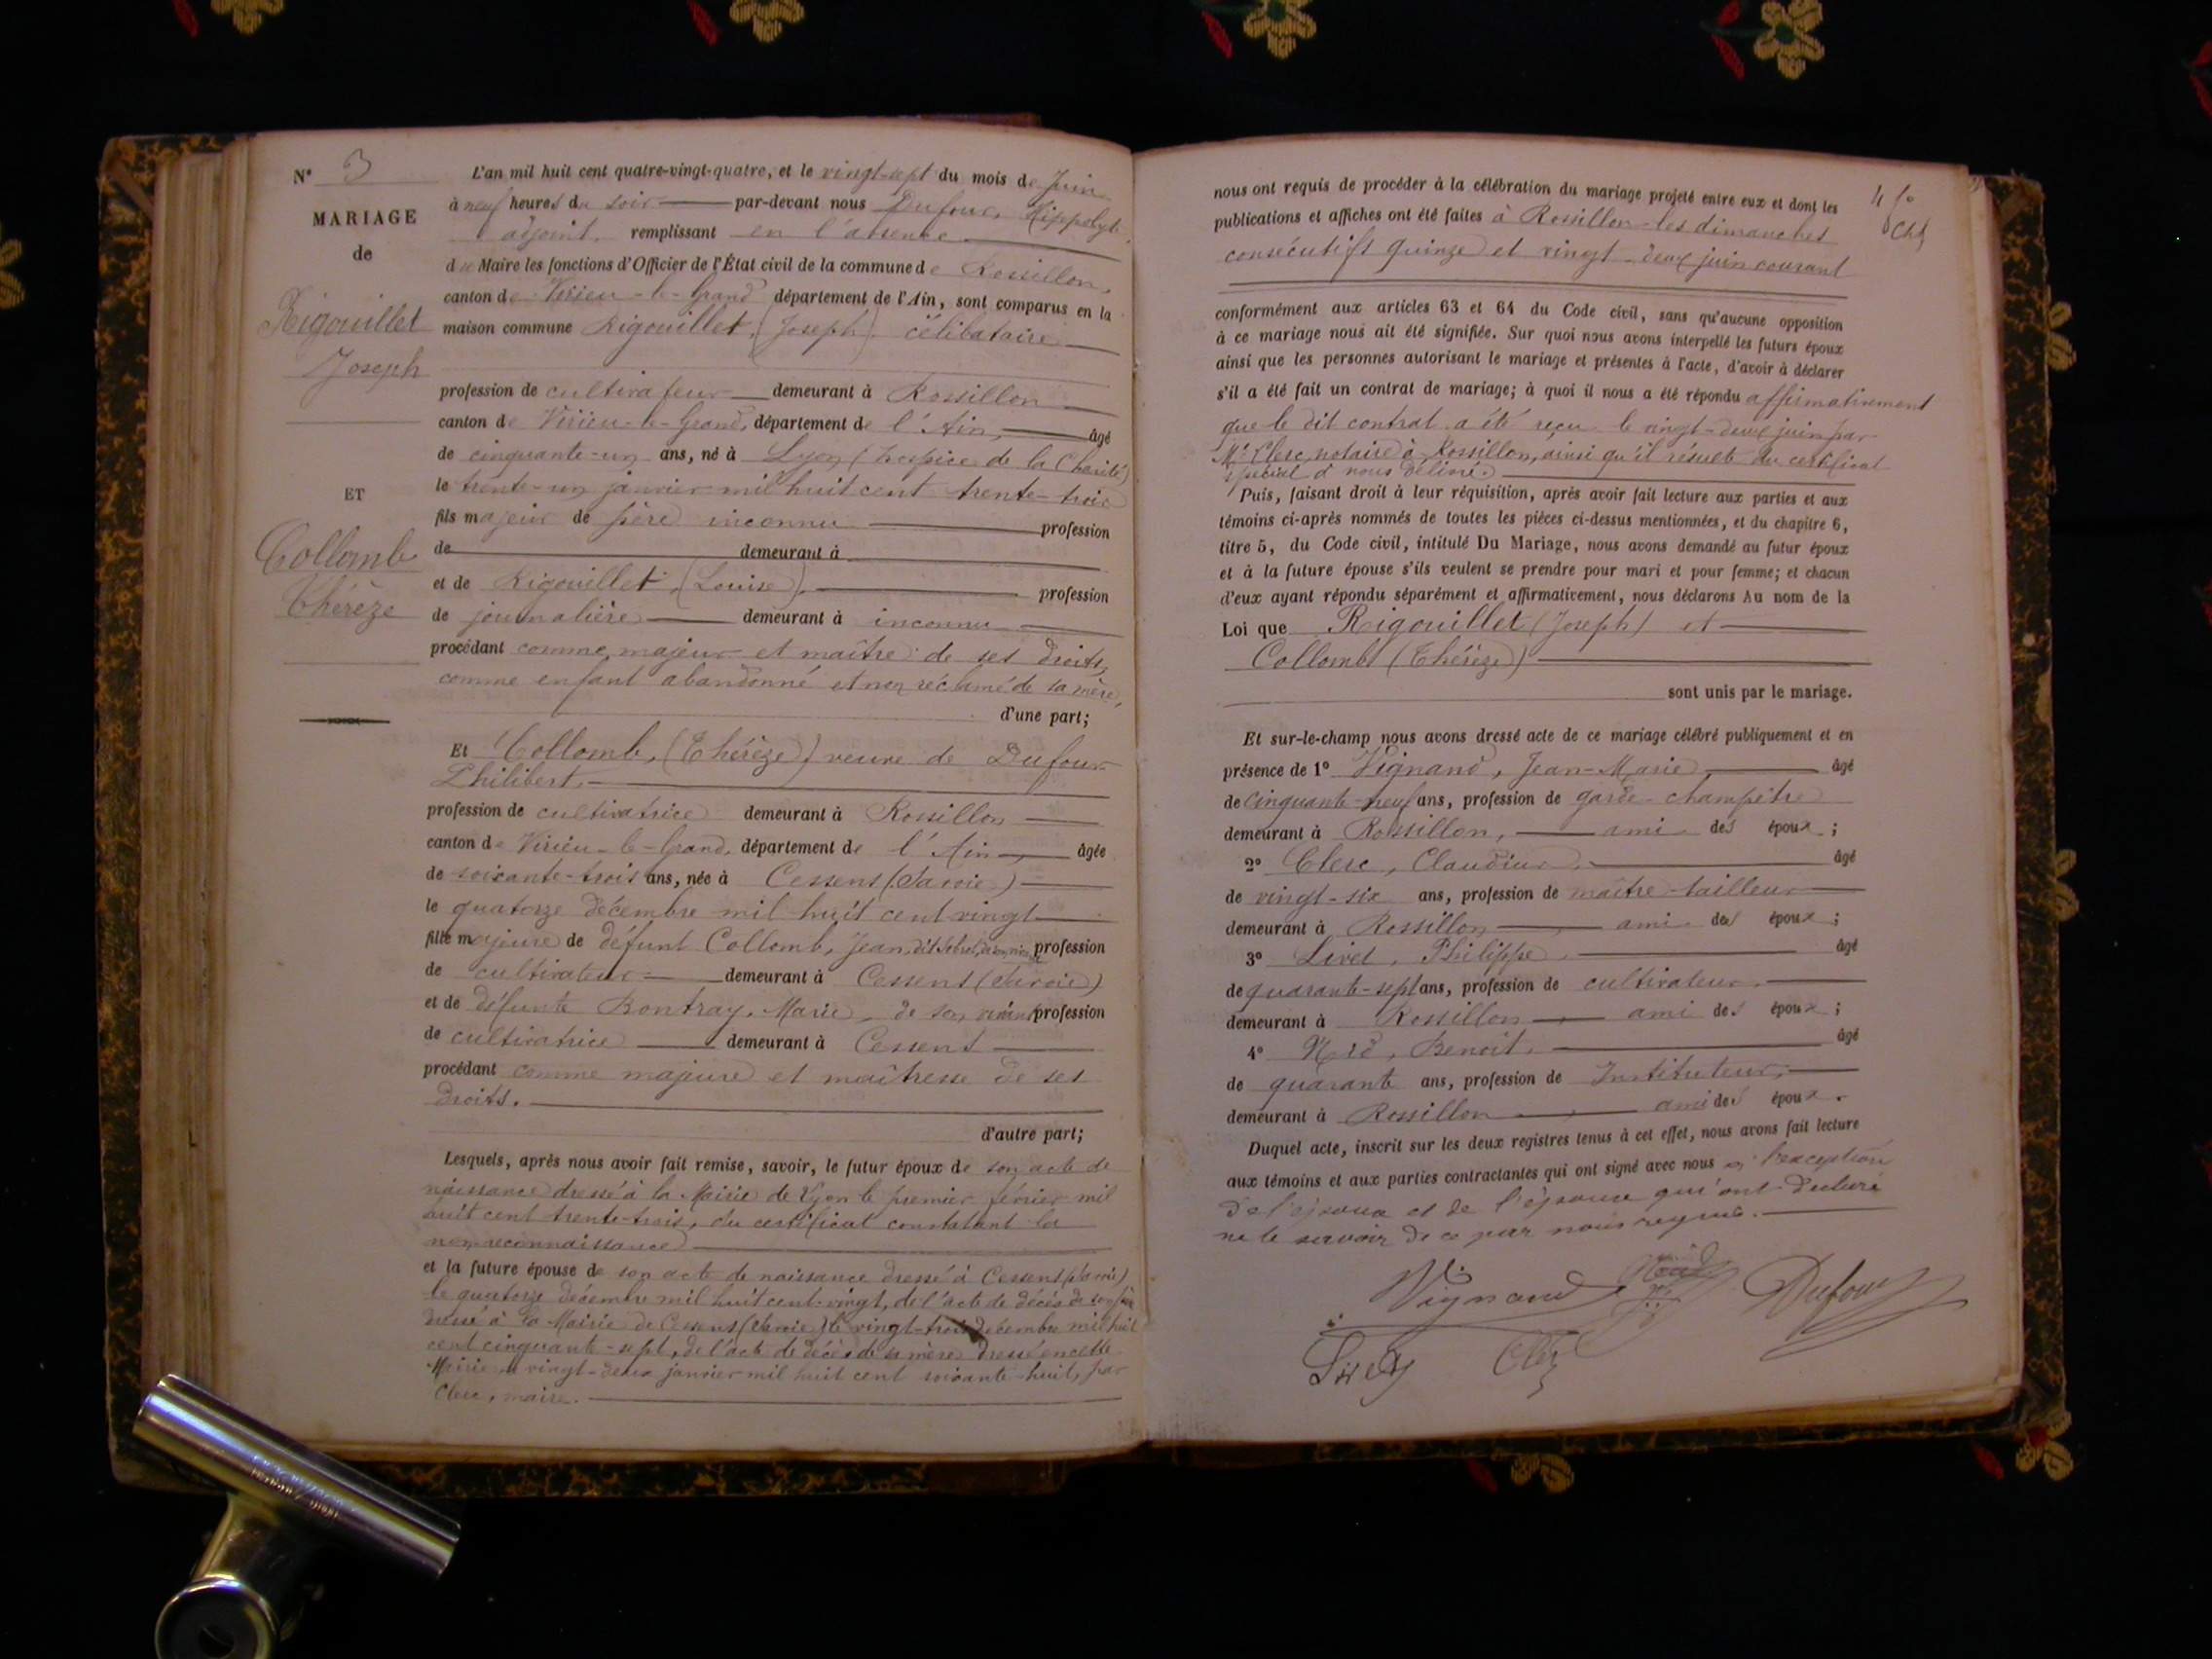 N° 3
MARIAGE
de
Rigouillet
Joseph
ET
Collomb
Thérèze
L'an mil huit cent quatre-vingt-quatre, et le vingt-sept du mois de Juin
à neuf heures du soir par-devant nous Dufour, Hippolyte
adjoint, remplissant en l'absence
du Maire les fonctions d'Officier de l'État civil de la commune de Rossillon,
canton de Virieu-le-Grand département de l'Ain, sont comparus en la
maison commune Rigouillet, (Joseph), célibataire
profession de cultivateur demeurant à Rossillon
canton de Virieu-le-Grand, département de l'Ain, âgé
de cinquante-un ans, né à Lyon (hospice de la Charité)
le trente-un janvier mil huit cent trente-trois
fils majeur de père inconnu profession
de demeurant à
et de Rigouillet, (Louise), profession
de journalière demeurant à inconnu
procédant comme majeur et maître de ses droits,
comme enfant abandonné et non réclamé de sa mère,
d'une part;
Et Collomb, (Thérèze) veuve de Dufour
Philibert,
profession de cultivatrice demeurant à Rossillon
canton de Virieu-le-Grand, département de l'Ain, âgée
de soixante-trois ans, née à Cessens (Savoie)
le quatorze décembre mil huit cent vingt
fille majeure de défunt Collomb, Jean, dit profession
de cultivateur demeurant à Cessens (Savoie)
et de défunte Bontray, Marie, de son vivant profession
de cultivatrice demeurant à Cessens
procédant comme majeure et maîtresse de ses
droits.
d'autre part;
Lesquels, après nous avoir fait remise, savoir, le futur époux de son acte de
naissance dressé à la Mairie de Lyon le premier février mil
huit cent trente-trois, du certificat constatant la
non reconnaissance
et la future épouse de son acte de naissance dressé à Cessens (Savoie)
le quatorze décembre mil huit cent vingt, de l'acte de décès de son père
dressé à la Mairie de Cessens (Savoie) le vingt-trois décembre mil huit
cent cinquante-sept, de l'acte de décès de sa mère dressé en cette
Mairie le vingt-deux janvier mil huit cent soixante-huit, par
Clerc, maire.
nous ont requis de procéder à la célébration du mariage projeté entre eux et dont les
publications et affiches ont été faites à Rossillon les dimanches
consécutifs quinze et vingt-deux juin courant
conformément aux articles 63 et 64 du Code civil, sans qu'aucune opposition
à ce mariage nous ait été signifiée. Sur quoi nous avons interpellé les futurs époux
ainsi que les personnes autorisant le mariage et présentes à l'acte, d'avoir à déclarer
s'il a été fait un contrat de mariage; à quoi il nous a été répondu affirmativement
que le dit contrat a été reçu le vingt-deux juin par
Me Clerc, notaire à Rossillon, ainsi qu'il résulte du certificat
spécial à nous délivré.
Puis, faisant droit à leur réquisition, après avoir fait lecture aux parties et aux
témoins ci-après nommés de toutes les pièces ci-dessus mentionnées, et du chapitre 6,
titre 5, du Code civil, intitulé Du Mariage, nous avons demandé au futur époux
et à la future épouse s'ils veulent se prendre pour mari et pour femme; et chacun
d'eux ayant répondu séparément et affirmativement, nous déclarons Au nom de la
Loi que Rigouillet (Joseph) et
Collomb (Thérèze)
sont unis par le mariage.
Et sur-le-champ nous avons dressé acte de ce mariage célébré publiquement et en
présence de 1° Vignand, Jean-Marie, âgé
de cinquante-neuf ans, profession de garde-champêtre
demeurant à Rossillon, ami des époux;
2° Clerc, Claudius, âgé
de vingt-six ans, profession de maître-tailleur
demeurant à Rossillon, ami des époux;
3° Livet, Philippe, âgé
de quarante-sept ans, profession de cultivateur,
demeurant à Rossillon, ami des époux;
4° Benoit, âgé
de quarante ans, profession de Instituteur,
demeurant à Rossillon, ami des époux.
Duquel acte, inscrit sur les deux registres tenus à cet effet, nous avons fait lecture
aux témoins et aux parties contractantes qui ont signé avec nous à l'exception
de l'époux et de l'épouse qui ont déclaré
ne le savoir de ce par nous requis.
Vignand Dufour
Livet Clerc